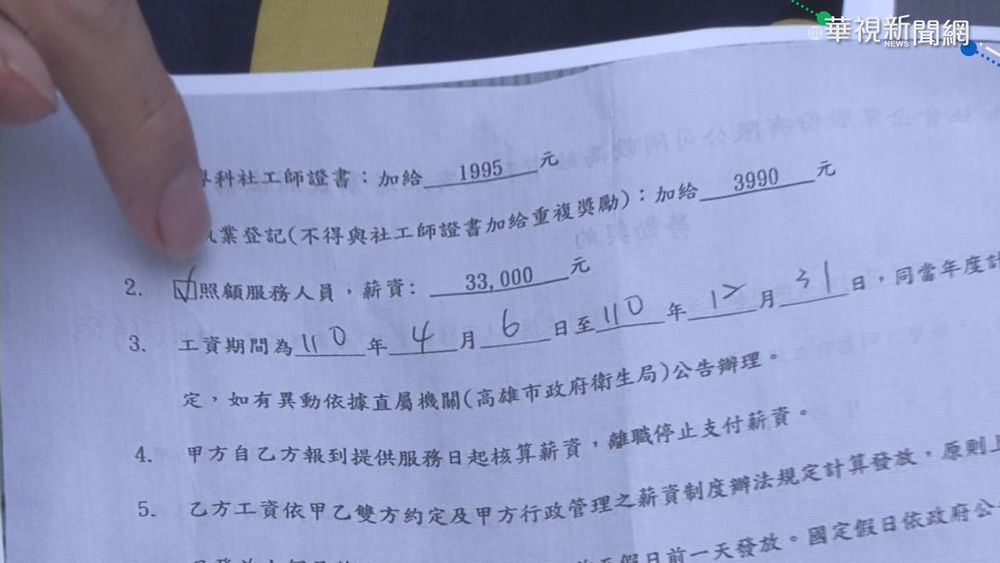 華視新聞網
NEWS
專科社工師證書：加給 1995 元
執業登記(不得與社工師證書加給重複獎勵)：加給 3990 元
2. ☑照顧服務人員，薪資: 33,000 元
3. 工資期間為 110 年 4 月 6 日至 110 年 12 月 31 日，同當年度計
定，如有異動依據直屬機關(高雄市政府衛生局)公告辦理。
4. 甲方自乙方報到提供服務日起核算薪資，離職停止支付薪資。
5. 乙方工資依甲乙雙方約定及甲方行政管理之薪資制度辦法規定計算發放，原則上
假日前一天發放。國定假日依政府公